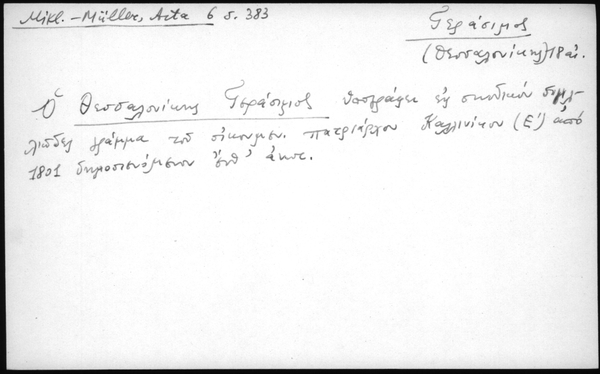 Mikl.-Müller, Acta 6 σ. 383
Γεράσιμος
(Θεσσαλονίκης) 18 αἰ.
Ὁ Θεσσαλονίκης Γεράσιμος ὑπογράφει εἰς συνοδικὸν
γράμμα τοῦ οἰκουμεν. πατριάρχου Καλλινίκου (Ε') ἀπὸ
1801 δημοσιευόμενον ἔνθ' ἀνωτ.